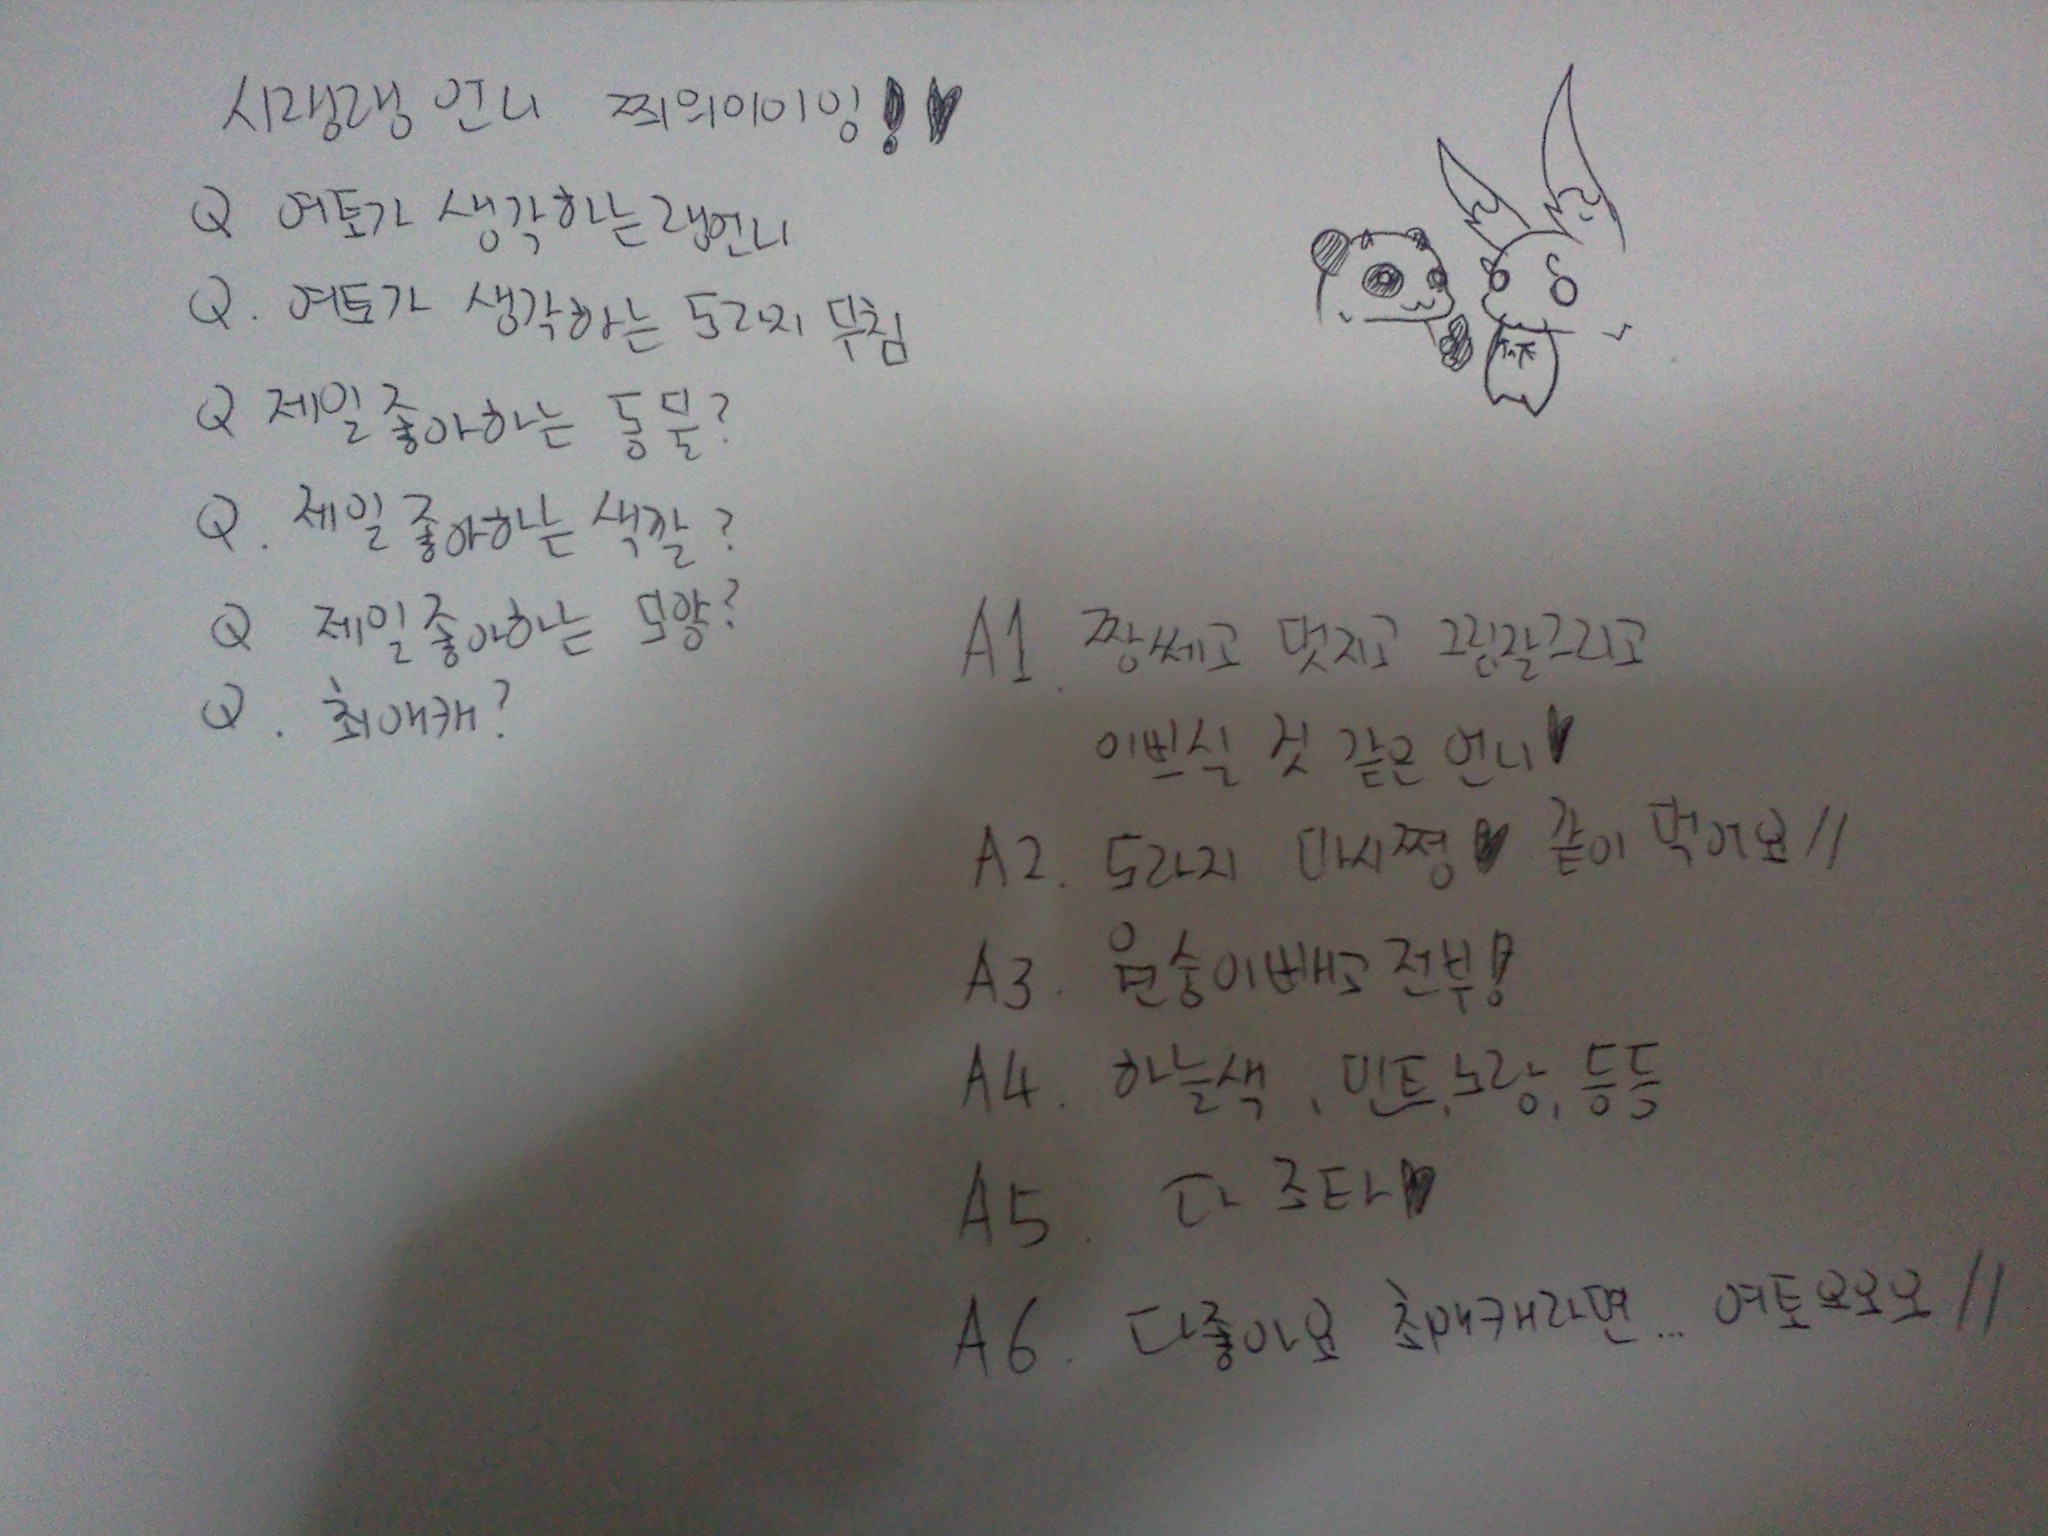 시랭랭 언니 찌의이이잉!♥
Q 여토가 생각하는 랩언니
Q. 여토가 생각하는 도라지 무침
Q 제일 좋아하는 동물?
Q. 제일 좋아하는 색깔?
Q 제일 좋아하는 모양?
Q. 최애캐?
A1. 짱쎄고 멋지고 그림잘그리고
이쁘실 것 같은 언니♥
A2. 도라지 마시쪙♥ 같이 먹어요//
A3. 원숭이빼고 전부!
A4. 하늘색, 민트, 노랑, 등등
A5. 다 조타♥
A6. 다좋아요 최애캐라면... 여토요오오//